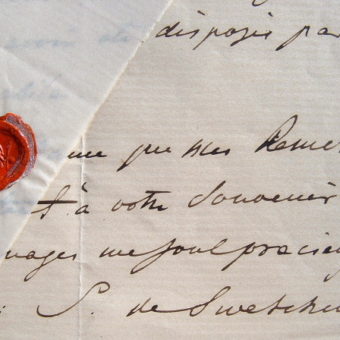 disposés par
me que mes Remer
t à votre Souvenir
nages me sont précieu
S. de Swetchin